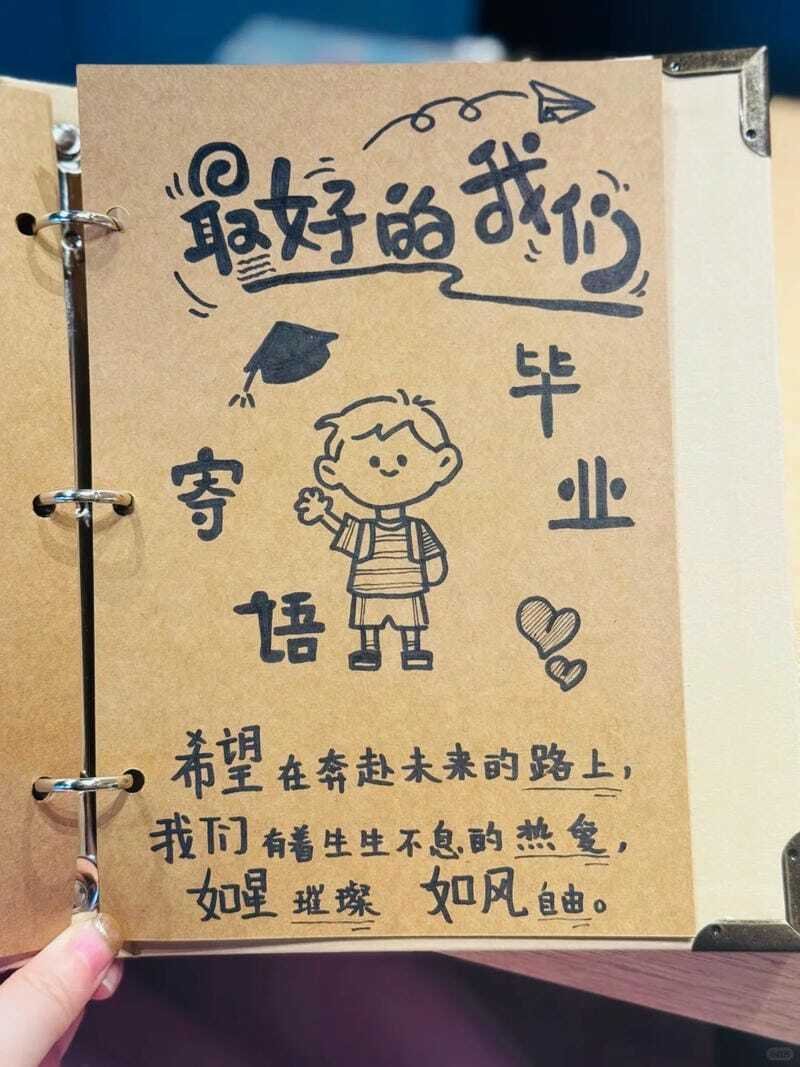 最好的我们
毕业
寄语
希望在奔赴未来的路上，
我们有着生生不息的热爱，
如星璀璨 如风自由。